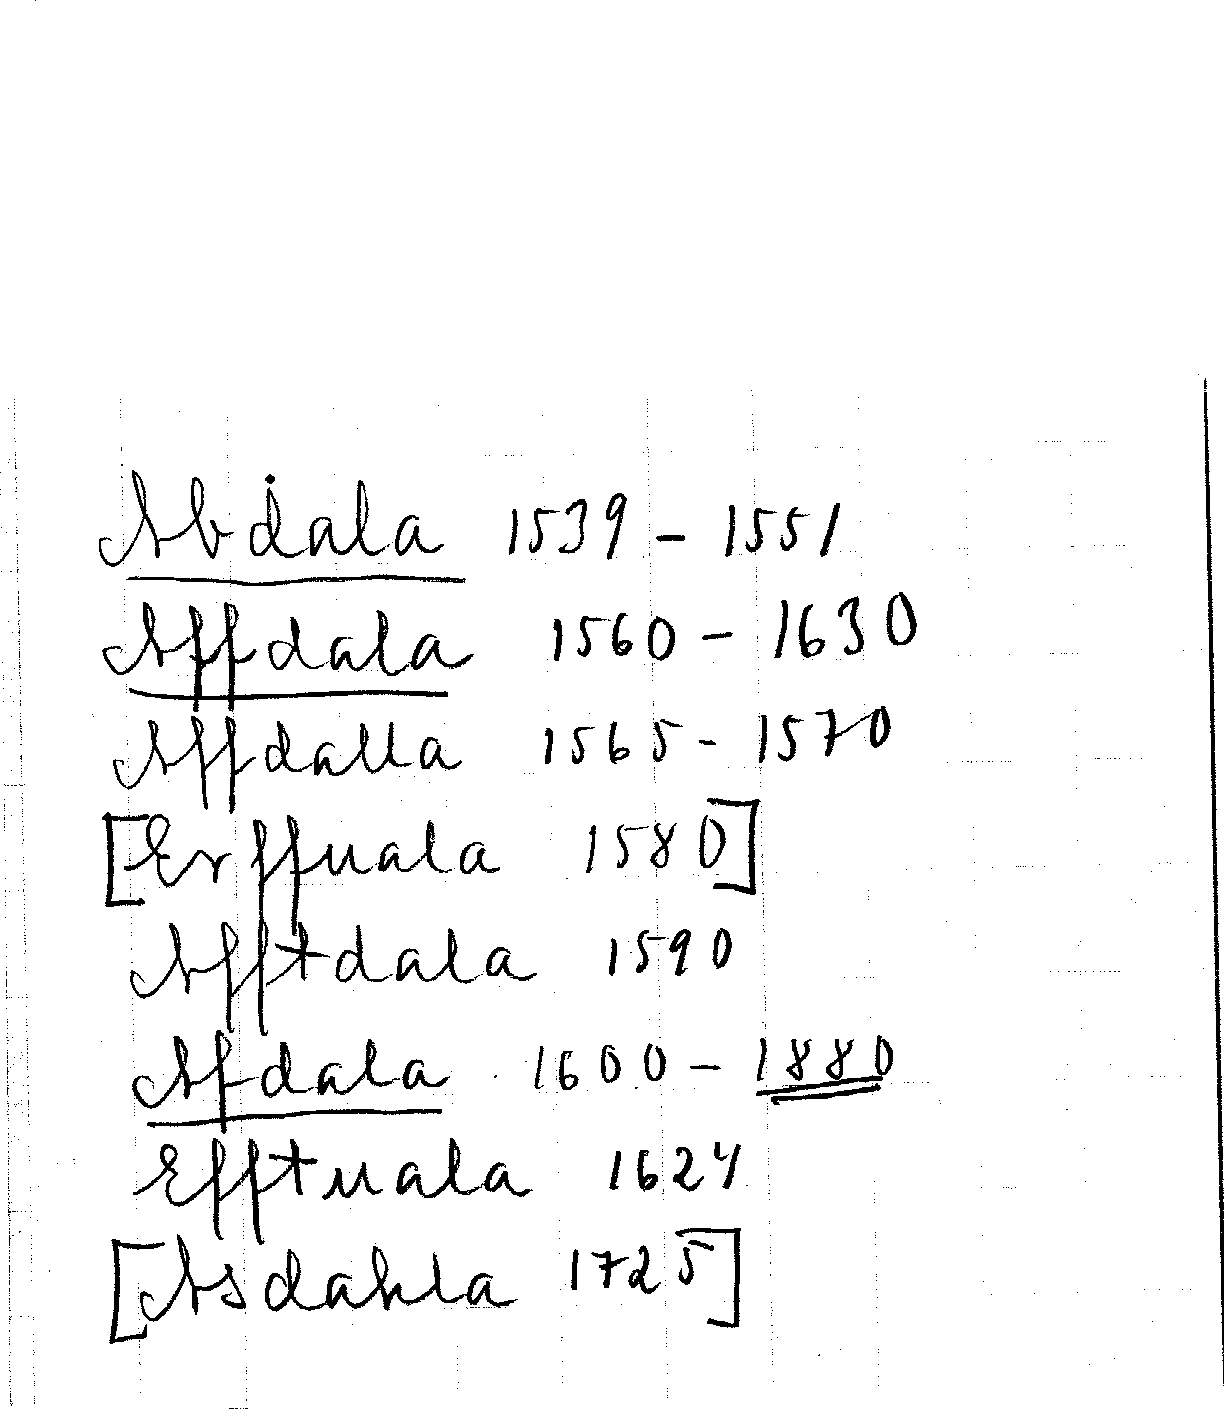 Abdala 1539 - 1551
Affdala 1560 - 1630
Affdalla 1565 - 1570
[Erffuala 1580]
Afftdala 1590
Afdala 1600 - 1880
Efftuala 1624
[Asdahla 1725]